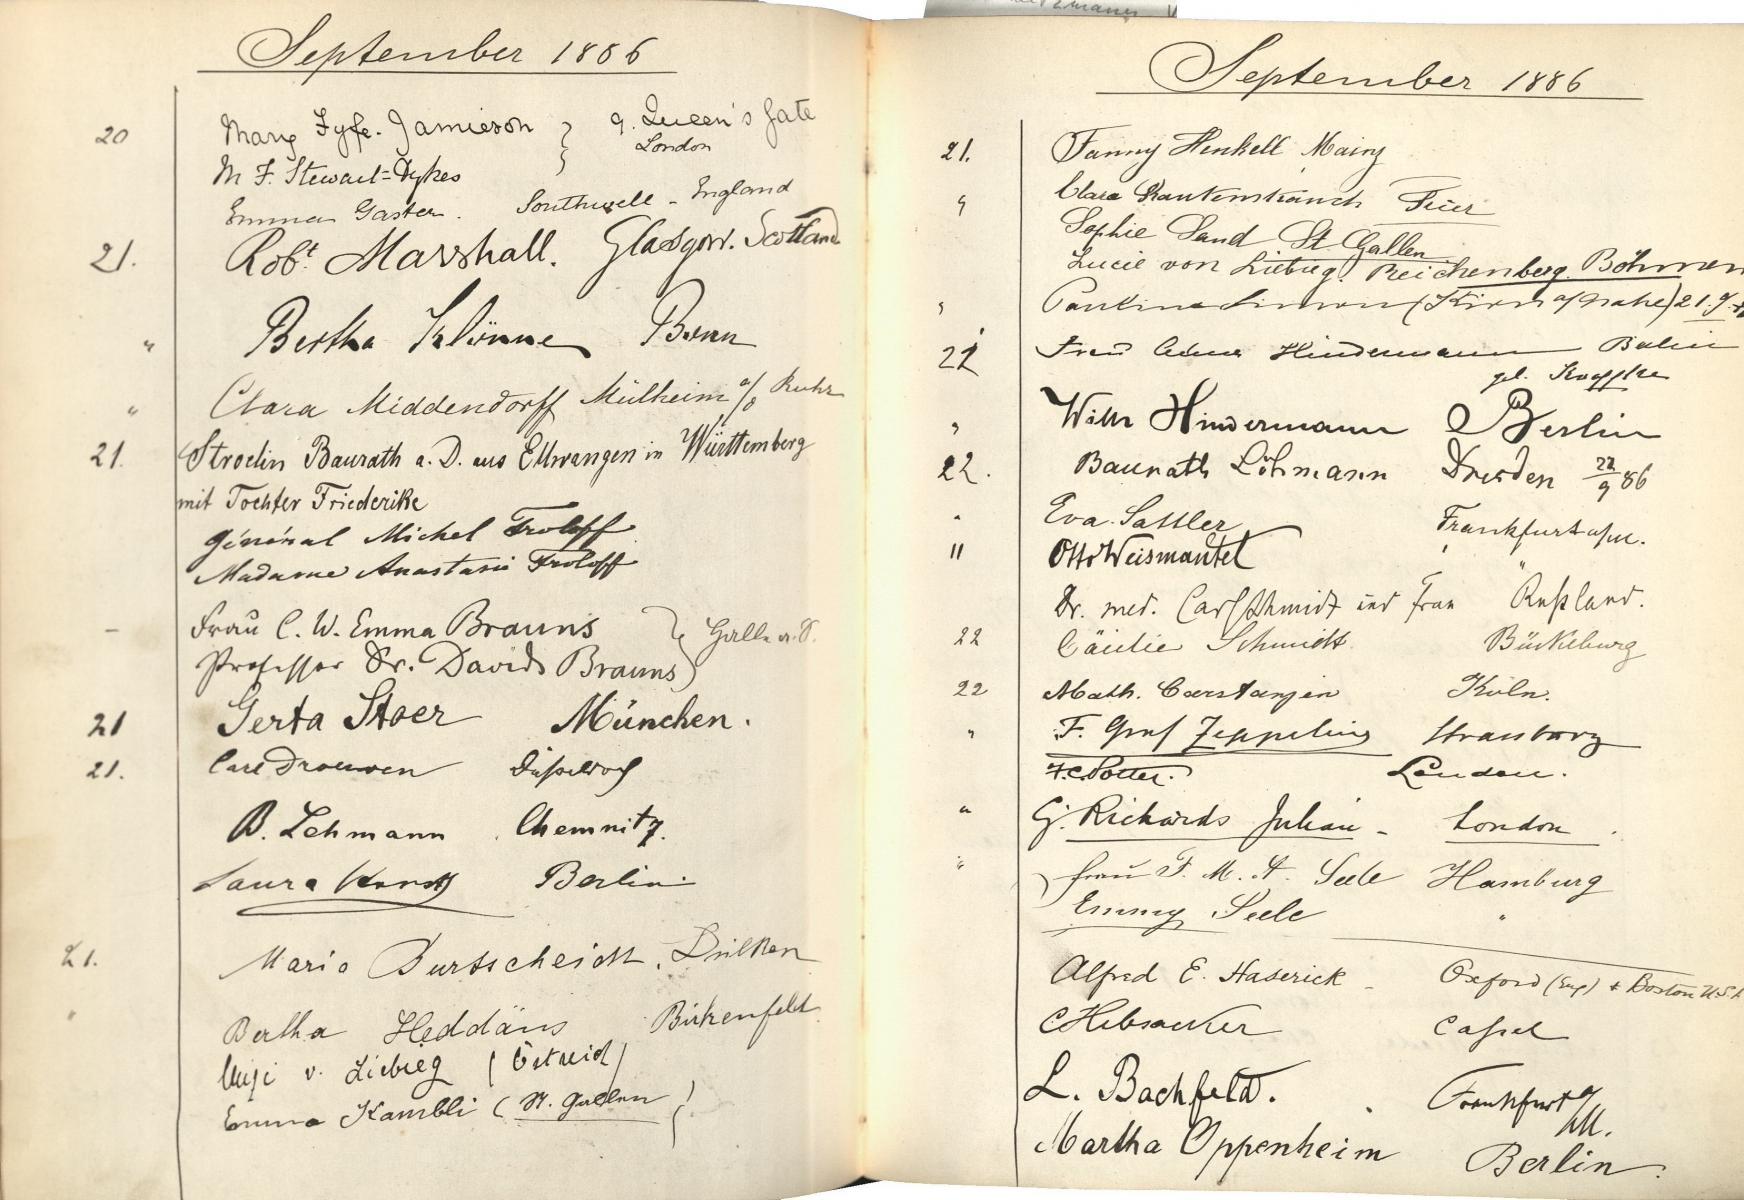 September 1886
20 Mary Fyfe-Jamieson } 9. Queen's Gate
London
M F. Stewart=Dykes
Emma Gaster. Southwell - England
21. Robt Marshall. Glasgow. Scotland
" Bertha Klönne Bonn
" Clara Middendorff Mülheim a/d Ruhr
21. Stroelin Baurath a. D. aus Ellwangen in Württemberg
mit Tochter Friederike
Général Michel Froloff
Madame Anastasie Froloff
– Frau C. W. Emma Brauns } Halle a. S.
Professor Dr. Davids Brauns
21 Gerta Stoer München.
21. Carl Drouven Düsseldorf
B. Lehmann Chemnitz.
Laura Berlin.
21. Maria Burtscheidt. Dülken
" Bertha Heddäus Birkenfeld
v. Liebieg (Östreich)
Emma Kambli (St. Gallen)
September 1886
21. Fanny Henkell Mainz
" Clara Rautenstrauch Trier
Sophie Sand St. Gallen
Lucie von Liebieg. Reichenberg. Böhmen
" Pauline Simon (Kirn a/Nahe) 21. 9.
22 Frau Hindermann Berlin
geb.
" Wilh Hindermann Berlin
22. Baurath Löhmann Dresden 22/9 86
" Eva Sattler Frankfurt a/m.
" Otto Weismantel "
Dr. med. Carl Schmidt und Frau Rußland.
22 Cäcilie Schmidt Bückeburg
22 Math. Carstanjen Köln.
" F. Graf Zeppelin Strassburg
F. C. Potter. London.
" G. Richards Julian - London.
" Frau F. M. A. Seele Hamburg
Emmy Seele "
Alfred E. Haserick - Oxford (Eng) + Boston U.S.A
Cassel
L. Bachfeld. Frankfurt a/M.
Martha Oppenheim Berlin.